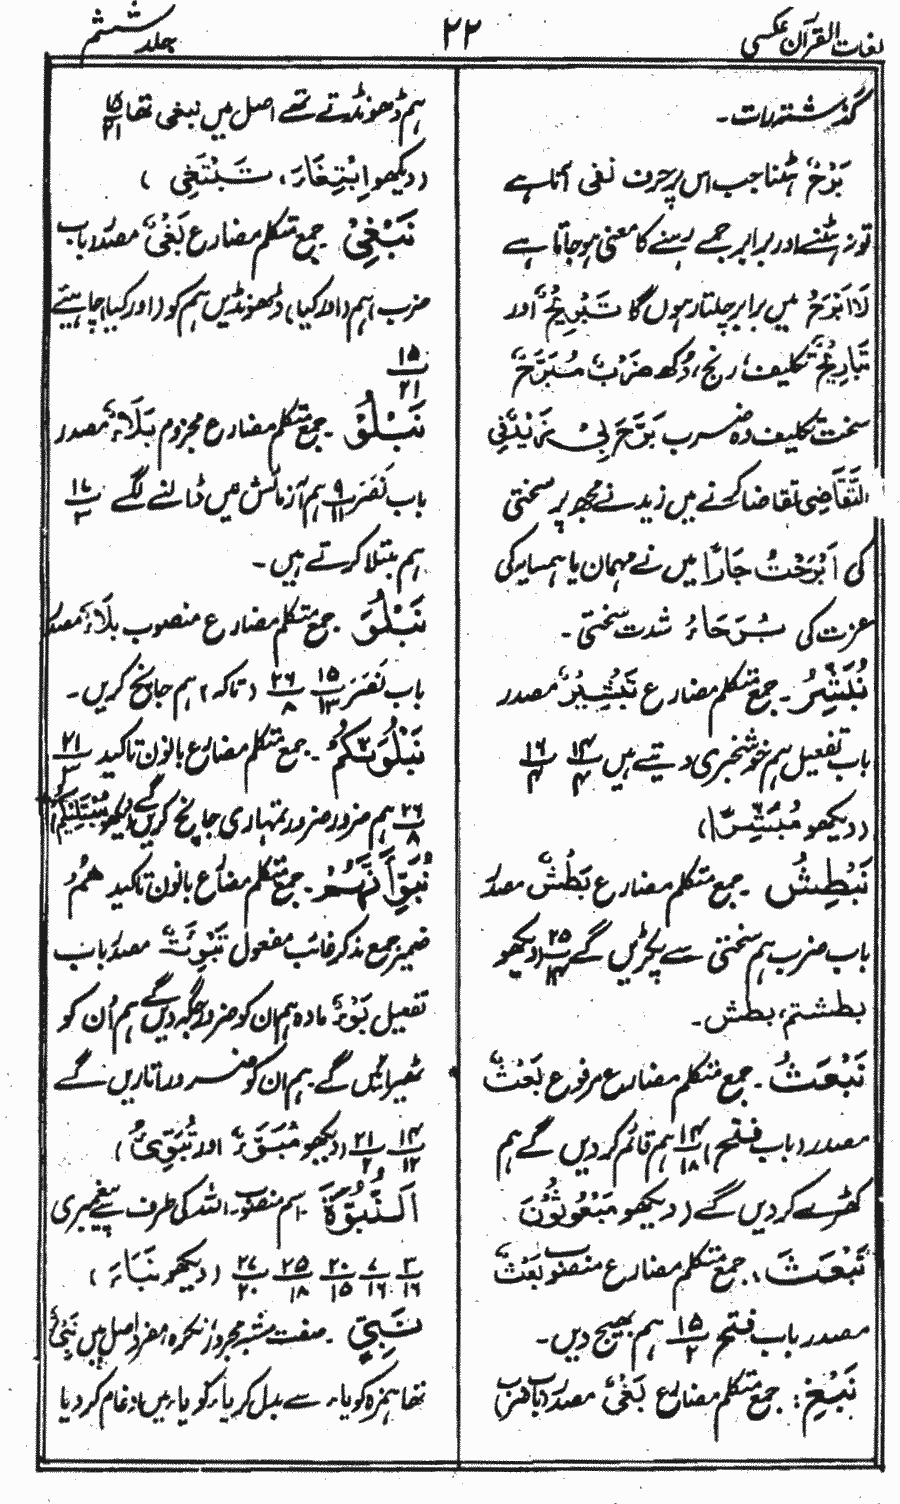 لغات القرآن عکسی
۲۲
جلد ششم
گذشتدات۔
بَرْحٌ ہٹنا جب اس پر حرف نفی آتا ہے
تو نہ ہٹنے اور برابر جمے رہنے کا معنی ہو جاتا ہے
لَا اَبْرَحُ میں برابر چلتا رہوں گا تَبْرِيحٌ اور
تَبَارِيحُ تکلیف، رنج، دُکھ ضَرْبٌ مُبَرِّحٌ
سخت تکلیف دہ ضرب بَرَّحَ بِیْ نَزِيْدُنِی
التَّقَاضِی تقاضا کرنے میں زید نے مجھ پر سختی
کی اَبْرَحْتُ جَارًا میں نے مہمان یا ہمسایہ کی
عزت کی بُرَحَاءُ شدت سختی۔
نُبَشِّرُ۔ جمع متکلم مضارع تَبْشِيْرٌ مصدر
باب تفعیل ہم خوشخبری دیتے ہیں ۱۴/۴ ۱۶/۴
(دیکھو مُبَشِّرًا)
نَبْطِشُ جمع متکلم مضارع بَطْشٌ مصدر
باب ضرب ہم سختی سے پکڑیں گے ۲۵/۱۴ (دیکھو
بطشتم، بطش۔
نَبْعَثُ۔ جمع متکلم مضارع مرفوع بَعْثٌ
مصدر (باب فتح) ۱۴/۱۸ ہم قائم کر دیں گے ہم
کھڑے کر دیں گے (دیکھو مَبْعُوثُوْنَ
نَبْعَثَ، جمع متکلم مضارع منصوب بَعْثٌ
مصدر باب فتح ۱۵/۲ ہم بھیج دیں۔
نَبْغِ: جمع متکلم مضارع بَغْیٌ مصدر (باب ضرب)
ہم ڈھونڈتے تھے اصل میں نبغی تھا ۱۵/۲۱
(دیکھو اِبْتِغَاءَ، تَبْتَغِی)
نَبْغِیْ جمع متکلم مضارع بَغْیٌ مصدر باب
ضرب اہم (اور کیا) ڈھونڈیں ہم کو (اور کیا) چاہیے
۱۵/۲۱
نَبْلُوْ۔ جمع متکلم مضارع مجزوم بَلَاءٌ مصدر
باب نَصَرَ ۹/۱۱ ہم آزمائش میں ڈالنے لگے ۱۷/۳
ہم مبتلا کرتے ہیں۔
نَبْلُوَ۔ جمع متکلم مضارع منصوب بلَاءٌ مصدر
باب نَصَرَ ۱۵/۱۳ ۲۶/۸ (تاکہ) ہم جانچ کریں۔
نَبْلُوَنَّكُمْ۔ جمع متکلم مضارع بانون تاکید ۲۱/۲
۲۶/۸ ہم ضرور ضرور تمہاری جانچ کریں گے (دیکھو مُبْتَلِیْکُمْ)
نُبَوِّأَنَّهُمْ۔ جمع متکلم مضارع بانون تاکید هُمْ
ضمیر جمع مذکر غائب مفعول تَبْوِئَةٌ مصدر باب
تفعیل بَوْءٌ مادہ ہم ان کو ضرور جگہ دیں گے ہم اُن کو
ٹھیرائیں گے ہم ان کو ضرور اتاریں گے
۱۴/۱۲ ۲۱/۲ (دیکھو مُبَوَّءَ اور تُبَوِّئُ)
اَلنُّبُوَّةَ۔ اسم منصوب۔ اللہ کی طرف سے پیغمبری
۳/۱۶ ۷/۱۶ ۲۰/۱۵ ۲۵/۱۸ ۲۷/۲۰ (دیکھو نَبَاءَ)
نَبِیّ۔ صفت مشبہ مجرور نکرہ مفرد اصل میں نَبِیْءٌ
تھا ہمزہ کو یاء سے بدل کر یاء کو یاء میں ادغام کر دیا